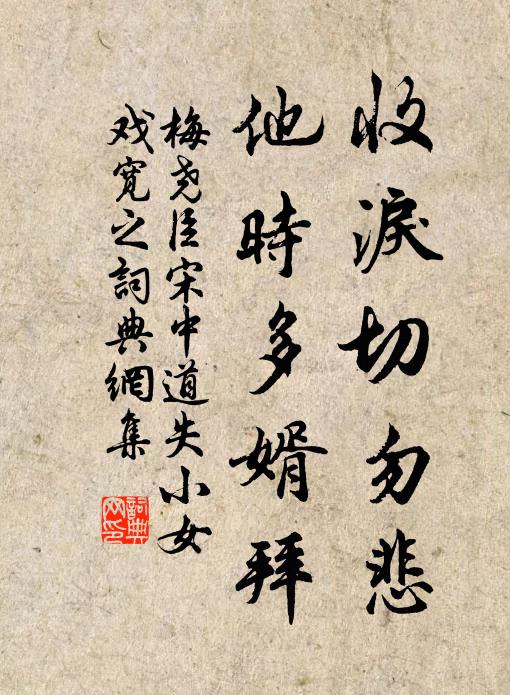 收淚切勿悲
他時多婿拜
梅堯臣宋中道失小女
戏寬之詞典網集
詞典
网印